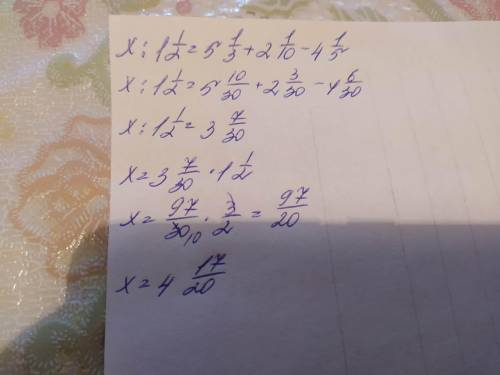 x : 1 1/2 = 5 1/3 + 2 1/10 - 4 1/5
x : 1 1/2 = 5 10/30 + 2 3/30 - 4 6/30
x : 1 1/2 = 3 7/30
x = 3 7/30 · 1 1/2
x = 97/30 10 · 3/2 = 97/20
x = 4 17/20